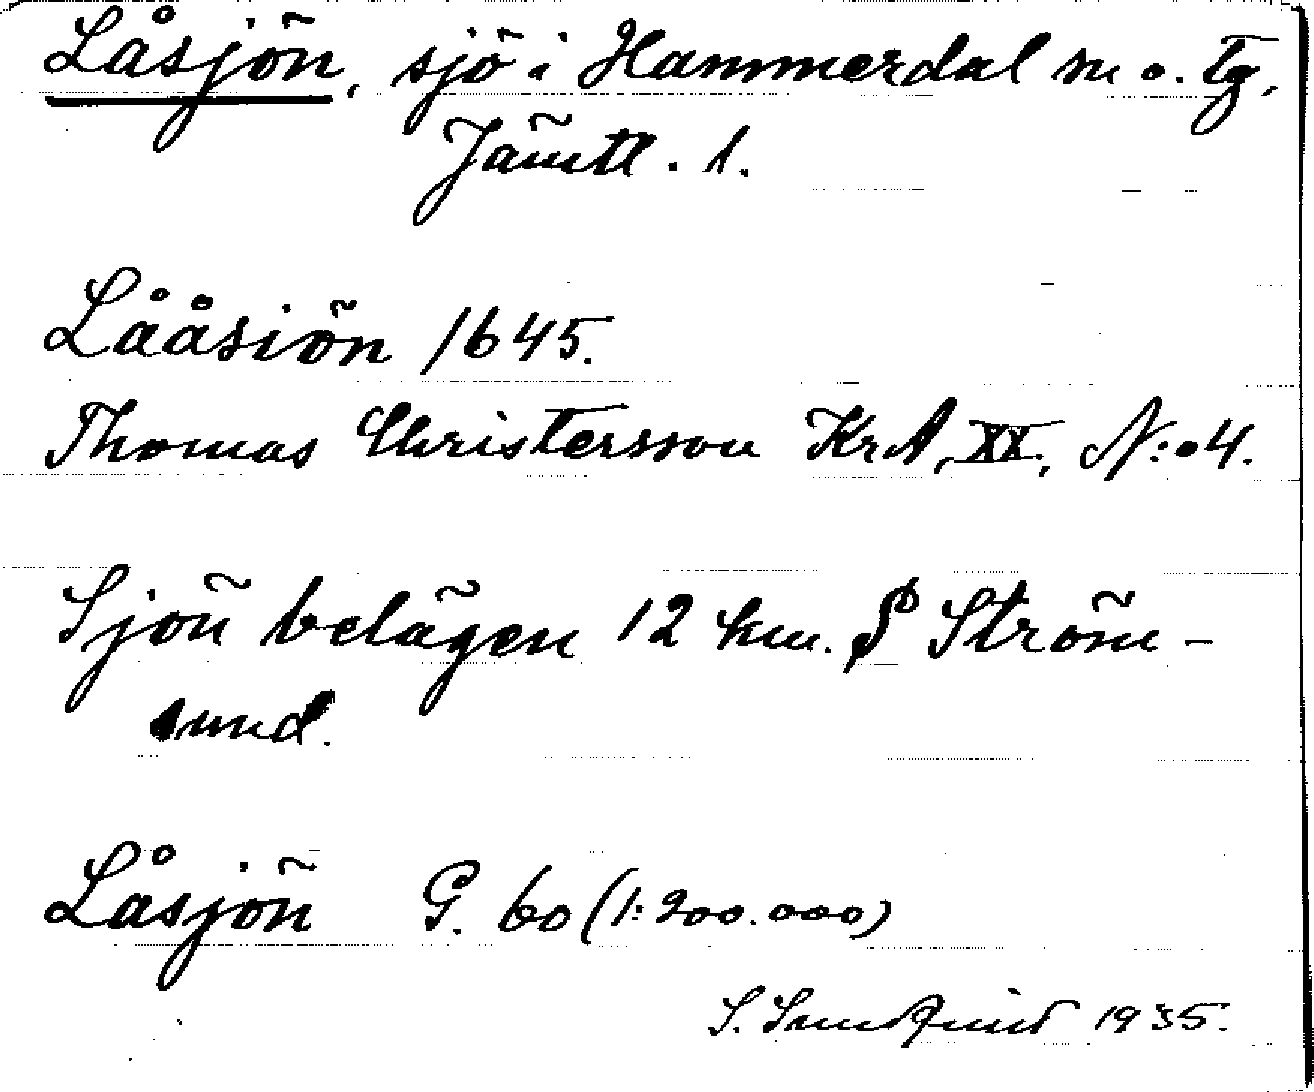 Låsjön, sjö i Hammerdal sn o. tg,
Jämtl. l.
Lååsiön 1645.
Thomas Christersson KrA, XX, N:o 4.
Sjön belägen 12 km. S Ström-
sund.
Låsjön G. 60 (1:200.000)
S. 1935.